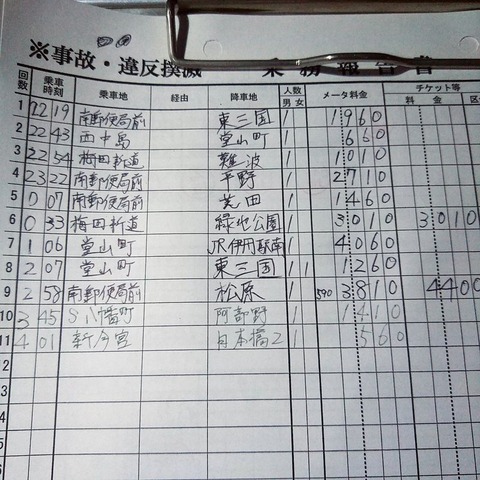 ※事故・違反撲滅 業務報告書
回数 乗車時刻 乗車地 経由 降車地 人数 男 女 メータ料金 チケット等 料金 区
1 22 19 南郵便局前 東三国 1 1960
2 22 43 西中島 堂山町 1 660
3 22 54 梅田新道 難波 1 1010
4 23 22 南郵便局前 平野 1 2710
5 0 07 南郵便局前 芝田 1 1460
6 0 33 梅田新道 緑地公園 1 3010 3010
7 1 06 堂山町 JR伊丹駅南 1 4060
8 2 07 堂山町 東三国 1 1 1260
9 2 58 南郵便局前 松原 1 590 3810 4400
10 3 45 S八幡町 阿部野 1 1410
11 4 01 新今宮 日本橋2 1 560
2
3
4
5